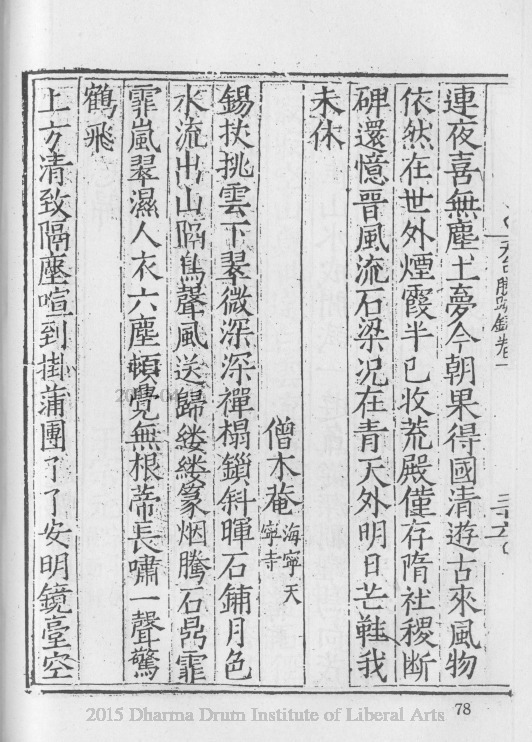 天台勝蹟錄卷一
連夜喜無塵土夢今朝果得國清遊古來風物
依然在世外煙霞半已收荒殿僅存隋社稷斷
碑還憶晉風流石梁况在青天外明日芒鞋我
未休
僧木菴 海寧天寧寺
錫扶挑雲下翠微深深禪榻鎖斜暉石鋪月色
水流出山隔鳥聲風送歸縷縷篆烟騰石鼎霏
霏嵐翠濕人衣六塵頓覺無根蒂長嘯一聲驚
鶴飛
上方清致隔塵喧到掛蒲團了了安明鏡臺空
78
2015 Dharma Drum Institute of Liberal Arts